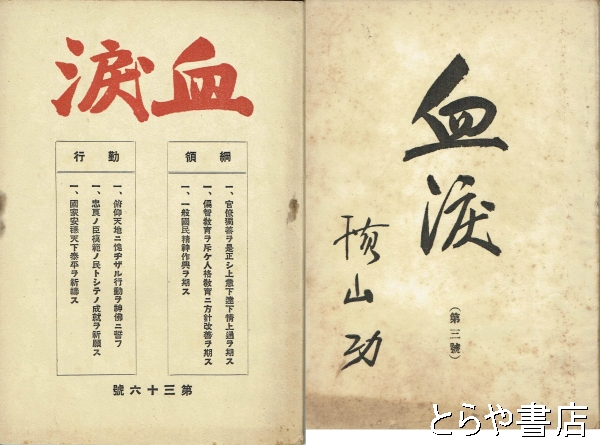 血淚
綱領
一、官僚獨善ヲ是正シ上意下達下情上通ヲ期ス
一、偏智教育ヲ斥ケ人格教育ニ方針改善ヲ期ス
一、一般國民精神作興ヲ期ス
勤行
一、俯仰天地ニ愧ヂザル行動ヲ神佛ニ誓フ
一、忠良ノ臣模範ノ民トシテノ成就ヲ祈願ス
一、國家安穩天下泰平ヲ祈禱ス
第三十六號
血淚
(第三號)
山功
とらや書店